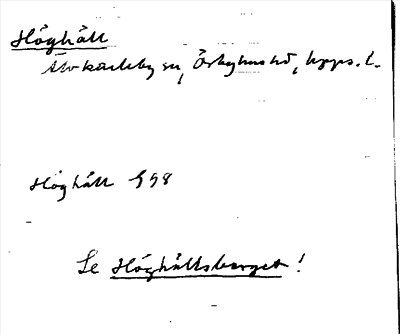 Höghäll
Älvkarleby sn, Örbyhus hd, Upps. l.
Höghäll G98
Se Höghällsberget!